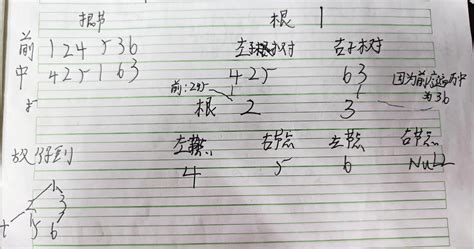 根节 根 1
前 1 2 4 5 3 6 左子树 右子树
中 4 2 5 1 6 3 4 2 5 6 3 因为前序遍历中
前:245 为36
根 2 3
故得到 左节点 右节点 左节点 右节点
4 5 6 Null
1
2 3
4 5 6